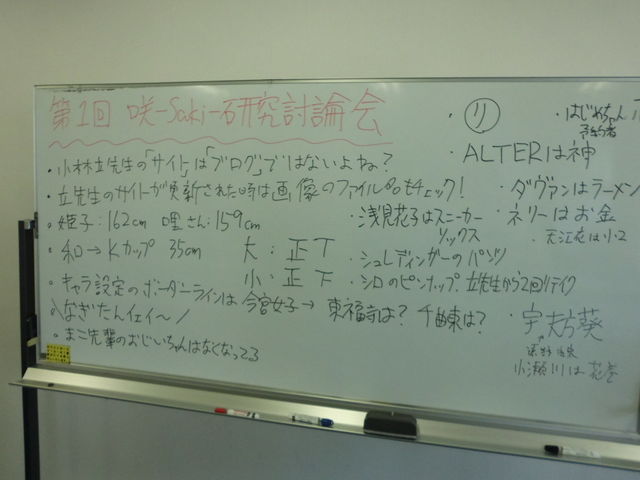 第1回 咲-Saki-研究討論会
・小林立先生の「サイト」は「ブログ」ではないよね?
・立先生のサイトが更新された時は画像のファイル名もチェック!
・姫子:162cm 哩さん:159cm
・和→Kカップ 35cm
大:正丅
小:正下
・キャラ設定のボーダーラインは今宮女子→東福寺は? 千曲東は?
\なぎたんイェイ〜/
・まこ先輩のおじいちゃんはなくなってる
・リ
・ALTERは神
・浅見花子はスニーカーソックス
・シュレディンガーのパンツ
・シロのピンナップ、立先生から2回リテイク
・はじめちゃん
予約者
・ダヴァンはラーメン
・ネリーはお金
天江衣は小2
・宇夫方葵
小瀬川は花巻